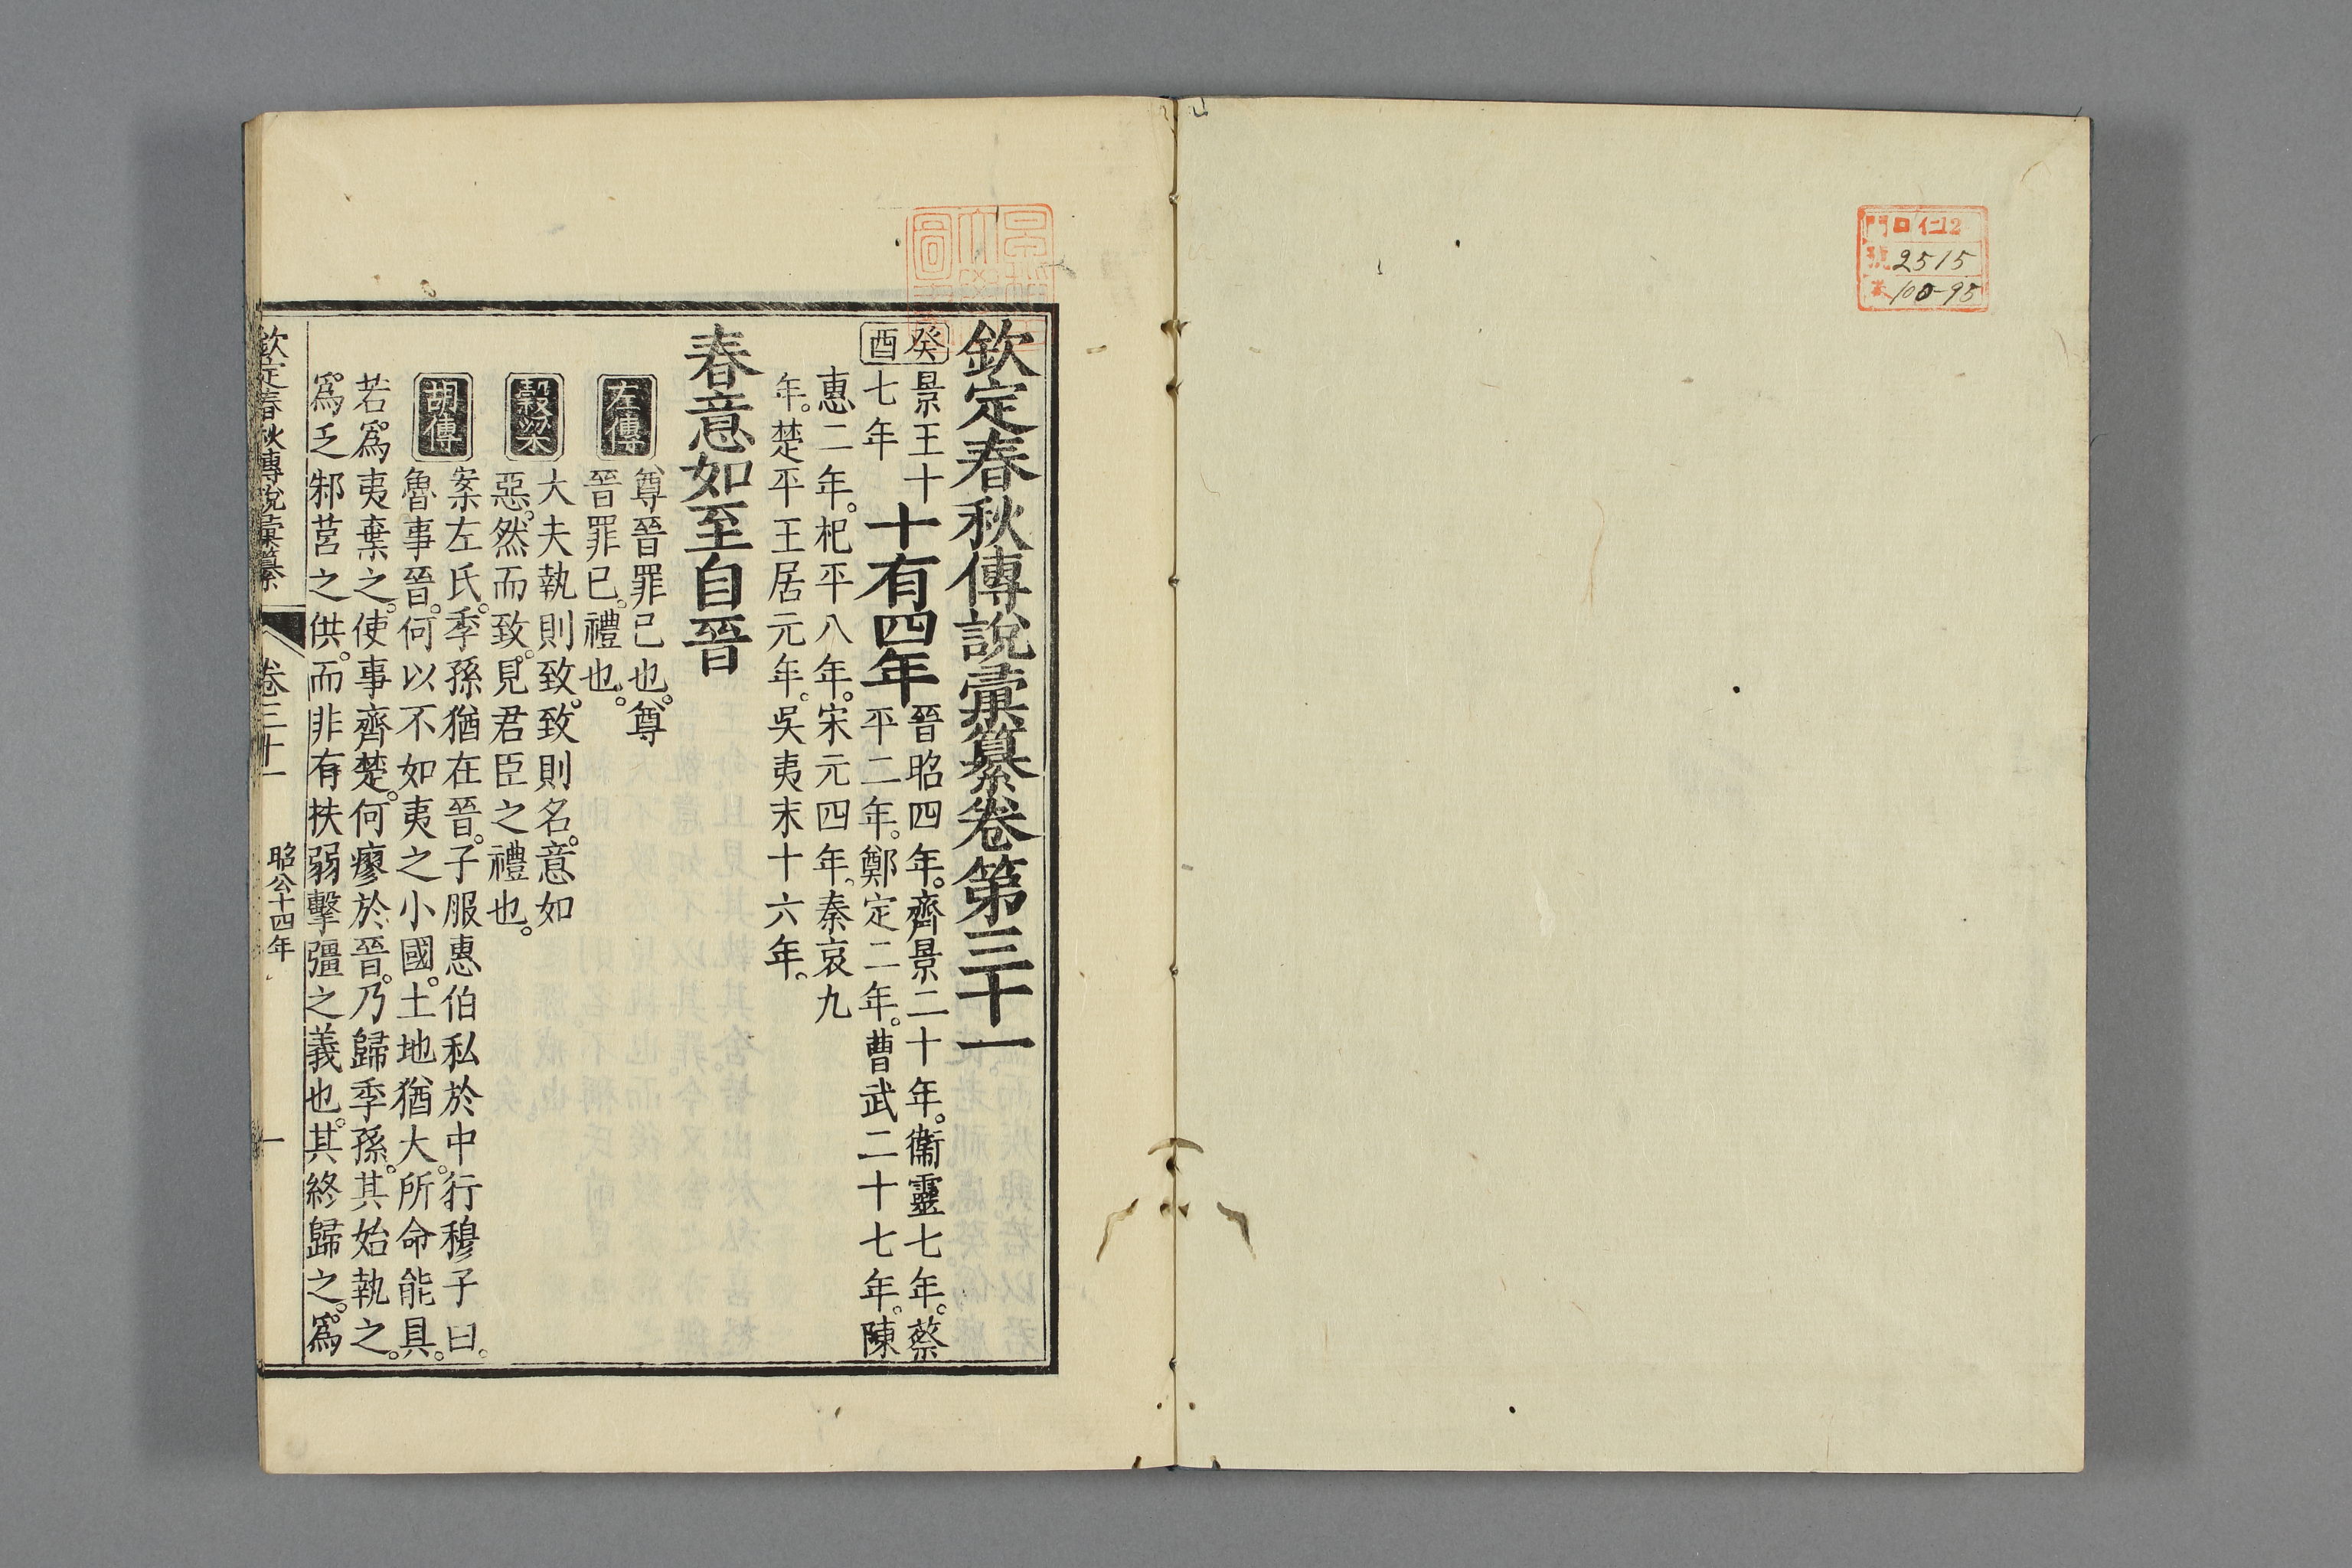 門 口 仁12
號 2515
卷 100-95
欽定春秋傳說彙纂卷第三十一
癸酉
景王十七年
十有四年
晉昭四年。齊景二十年。衞靈七年。蔡
平二年。鄭定二年。曹武二十七年。陳
惠二年。杞平八年。宋元四年。秦哀九
年。楚平王居元年。吳夷末十六年。
春意如至自晉
左傳
尊晉罪己也。尊
晉罪已。禮也。
穀梁
大夫執則致。致則名。意如
惡。然而致。見君臣之禮也。
胡傳
案左氏。季孫猶在晉。子服惠伯私於中行穆子曰。
魯事晉。何以不如夷之小國。土地猶大。所命能具。
若爲夷棄之。使事齊楚。何瘳於晉。乃歸季孫。其始執之。
爲乏邾莒之供。而非有扶弱擊彊之義也。其終歸之。爲
欽定春秋傳說彙纂 卷三十一 昭公十四年 一